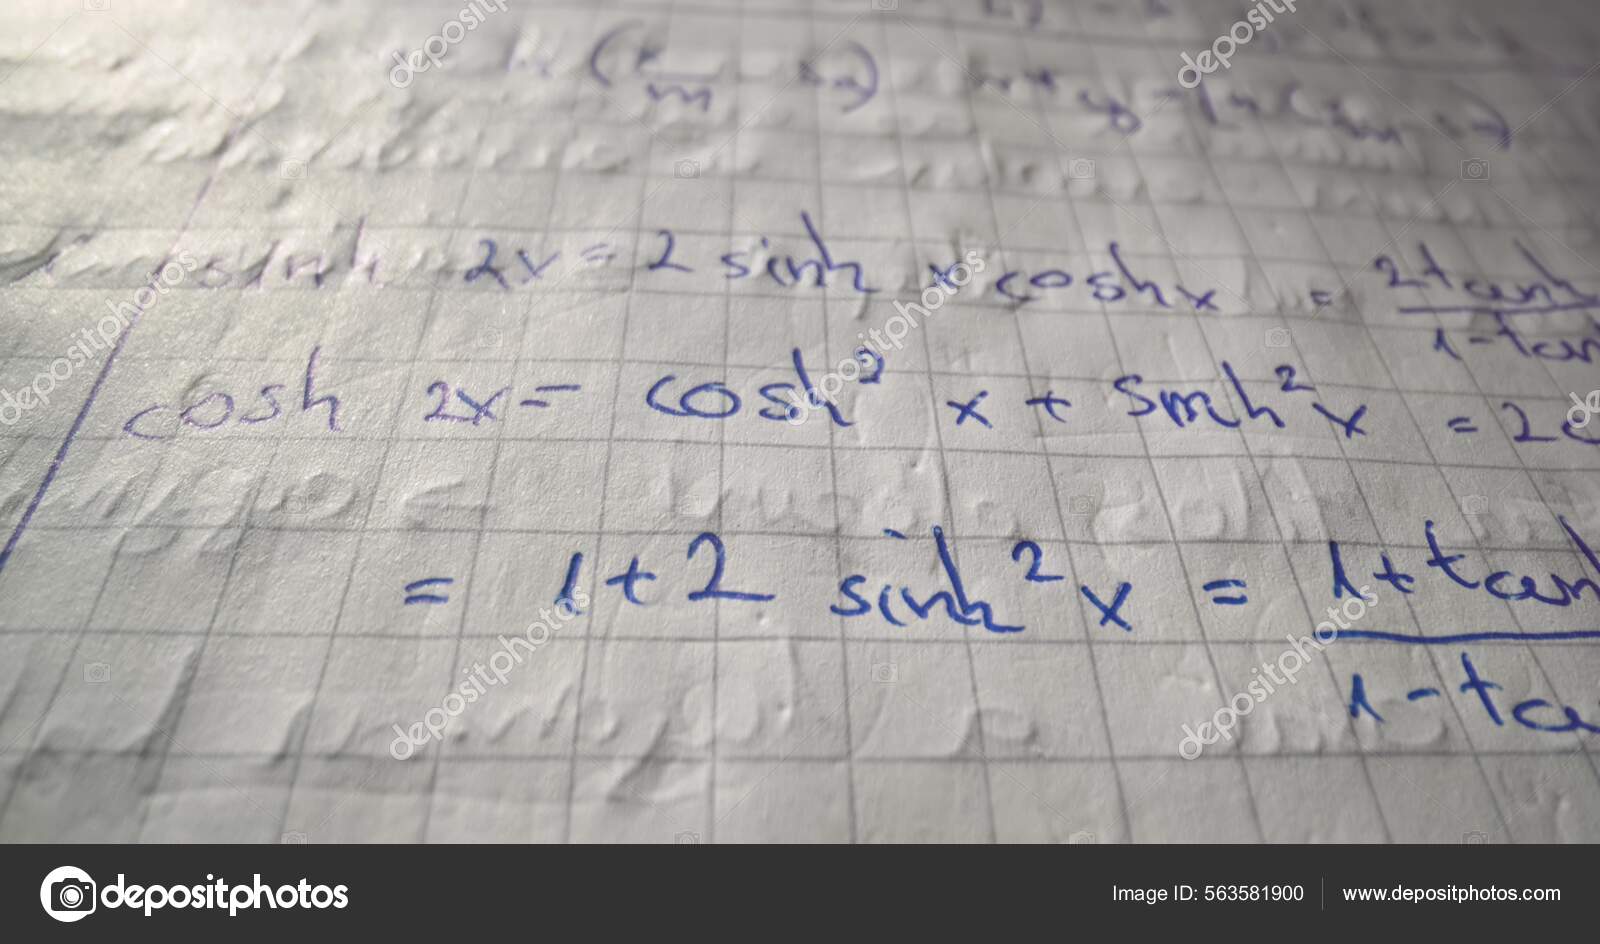 sinh 2x = 2 sinh x cosh x = 2tanh
1-tan
cosh 2x = cosh² x + sinh² x = 2c
= 1+2 sinh² x = 1+tanh
1-ta
depositphotos
Image ID: 563581900
www.depositphotos.com